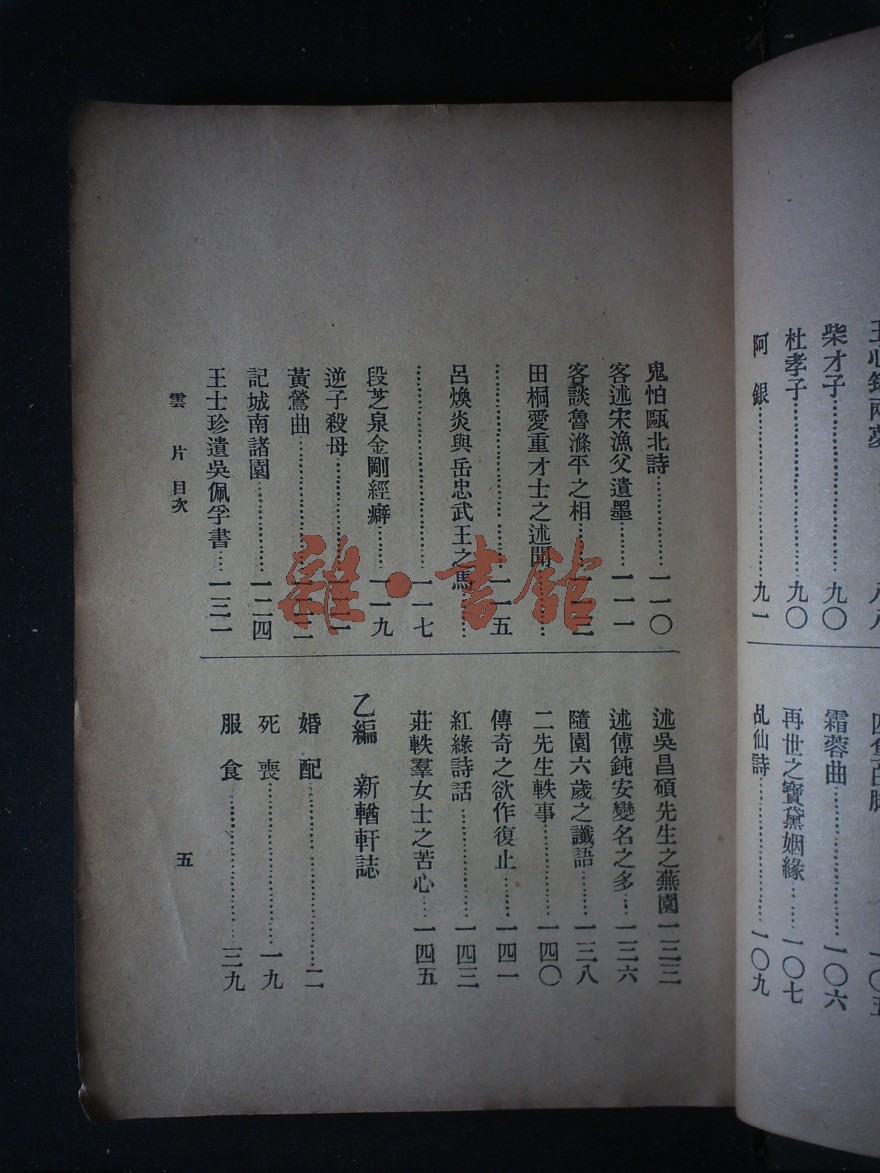 柴才子……九〇
杜孝子……九〇
阿銀……九一
霜蓉曲……一〇六
再世之寶黛姻緣……一〇七
乩仙詩……一〇九
鬼怕甌北詩……一一〇
客述宋漁父遺墨……一一一
客談魯滌平之相……一一二
田桐愛重才士之述聞……
……一一五
呂煥炎與岳忠武王之馬……
……一一七
段芝泉金剛經癖……一一九
逆子殺母……
黃鶯曲……
記城南諸園……一二四
王士珍遺吳佩孚書……一三一
述吳昌碩先生之蕪園一三三
述傅鈍安變名之多……一三六
隨園六歲之讖語……一三八
二先生軼事……一四〇
傳奇之欲作復止……一四一
紅綠詩話……一四三
莊軼羣女士之苦心……一四五
乙編 新輶軒誌
婚配……二
死喪……一九
服食……三九
雲片目次
五
雜·書館